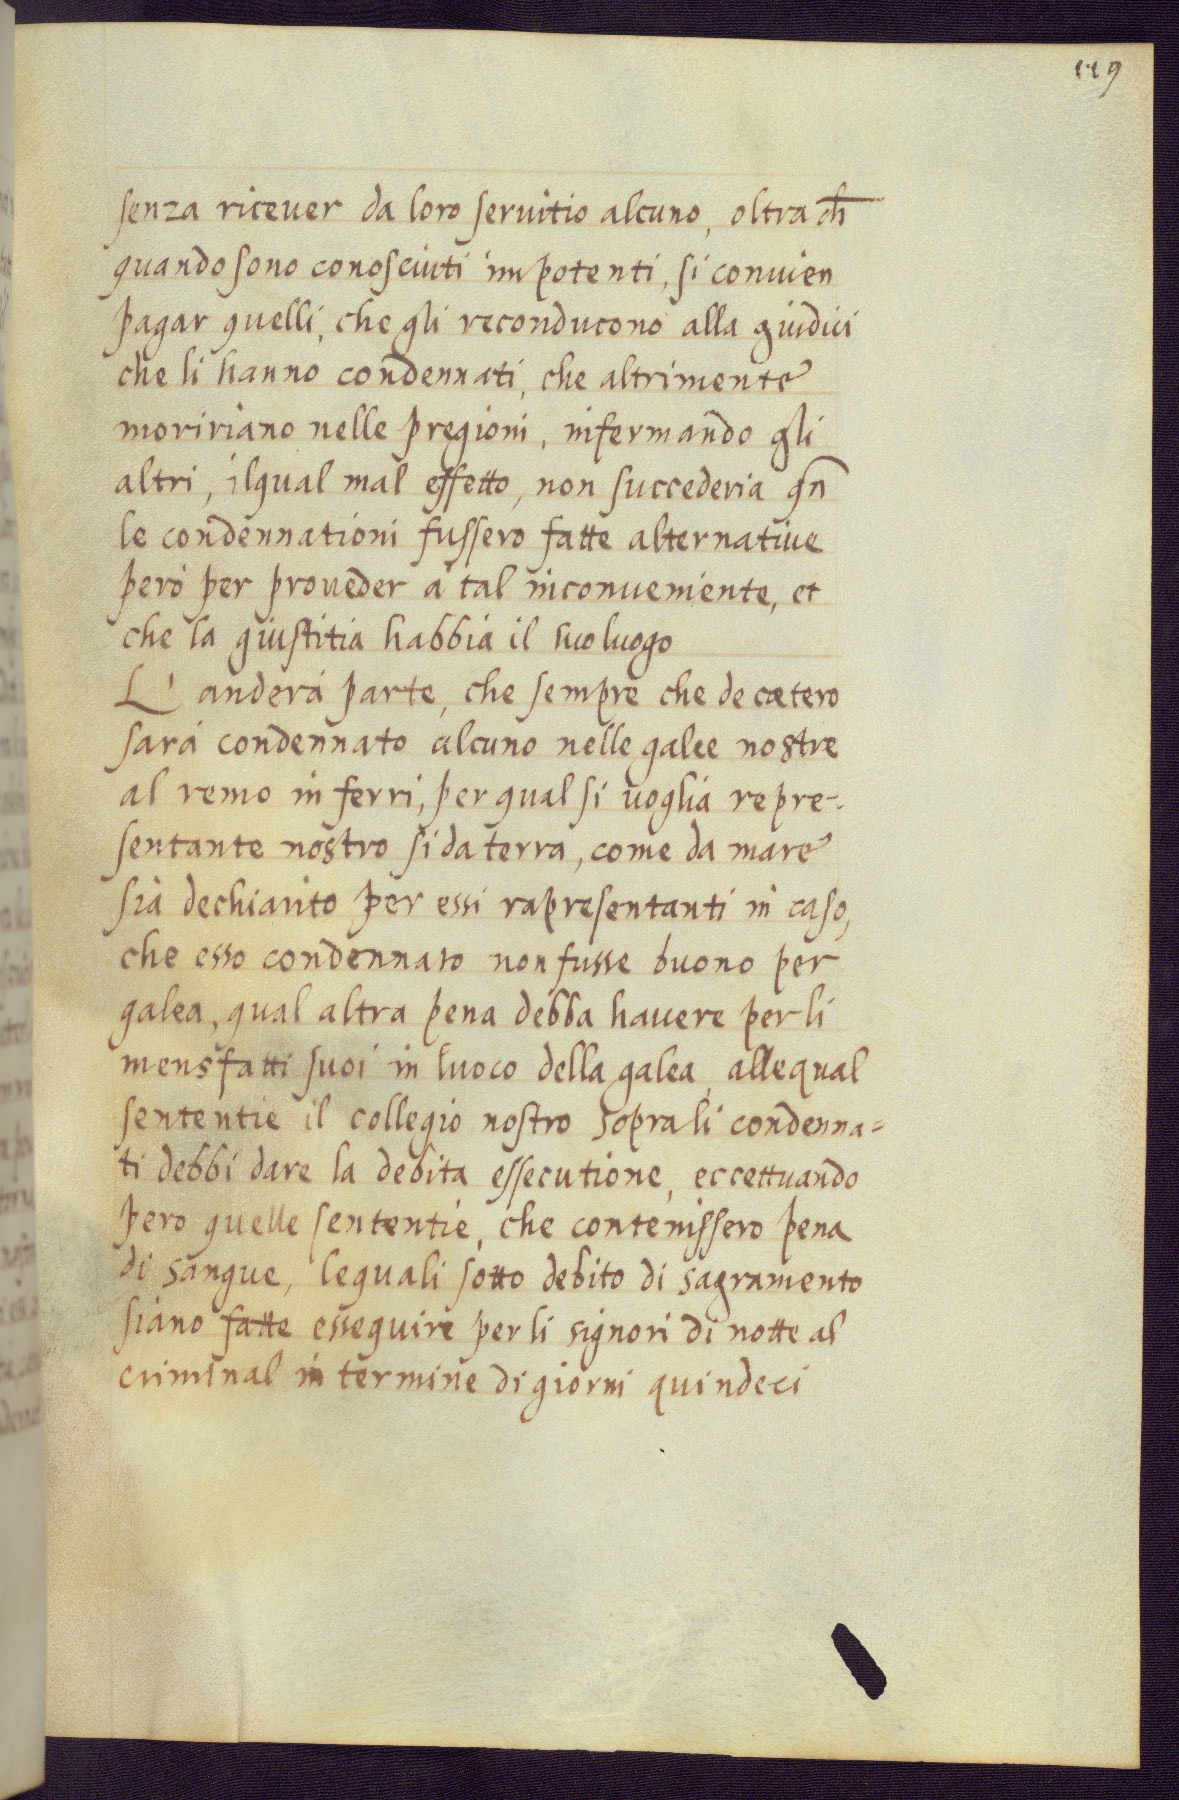 119
senza riceuer da loro seruitio alcuno, oltra ch̄
quando sono conosciuti impotenti, si conuien
pagar quelli, che gli reconducono alla giudici
che li hanno condennati, che altrimente
moririano nelle pregioni, infermando gli
altri, ilqual mal effetto, non succederia qn̄
le condennationi fussero fatte alternatiue
però per proueder à tal inconueniente, et
che la giustitia habbia il suo luogo
L' anderà parte, che sempre che de cætero
sarà condennato alcuno nelle galee nostre
al remo in ferri, per qual si uoglia repre-
sentante nostro si da terra, come da mare
sia dechiarito per essi rapresentanti in caso,
che esso condennato non fusse buono per
galea, qual altra pena debba hauere per li
mensfatti suoi in luoco della galea, allequal
sententie il collegio nostro sopra li condenna=
ti debbi dare la debita essecutione, eccettuando
pero quelle sententie, che contenissero pena
di sangue, lequali sotto debito di sagramento
siano fatte esseguire per li signori di notte al
criminal in termine di giorni quindeci